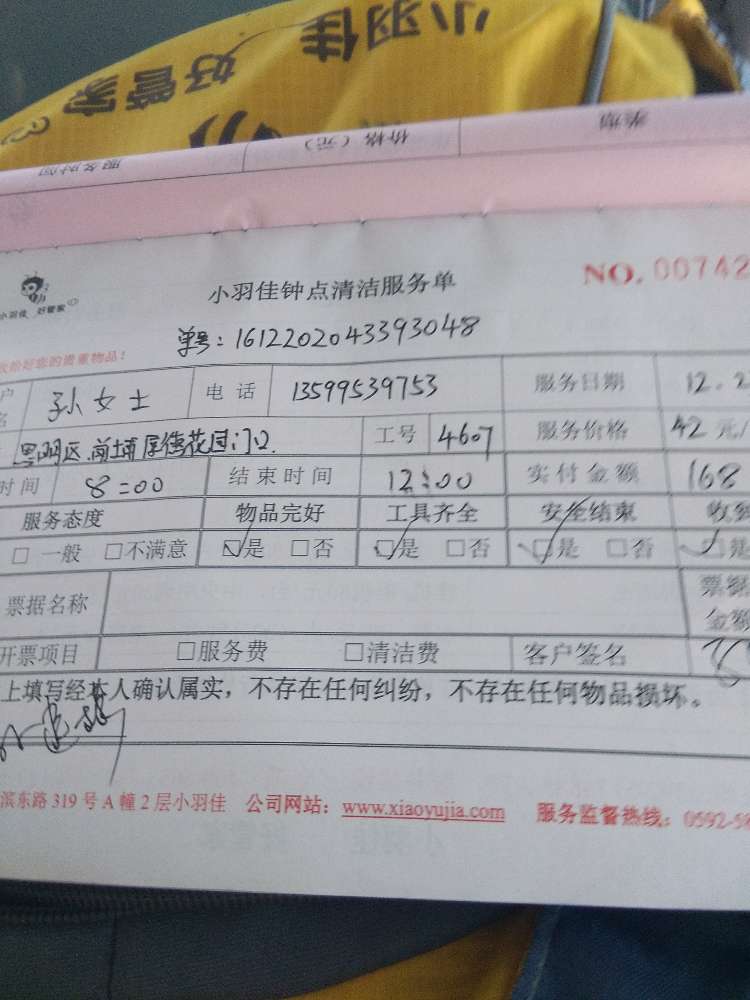 小羽佳
好管家
服务时间 价格（元） 类型
小羽佳 好管家
小羽佳钟点清洁服务单 NO. 00742
单号：1612202043393048
收拾好您的贵重物品！
户 孙女士 电话 13599539753 服务日期 12.2
名
思明区.前埔厚德花园门口. 工号 4607 服务价格 42元/
时间 8=00 结束时间 12:00 实付金额 168
服务态度 物品完好 工具齐全 安全结束 收到
□一般 □不满意 ☑是 □否 ☑是 □否 ☑是 □否 ☑是
票据名称 票据
金额
开票项目 □服务费 □清洁费 客户签名
上填写经本人确认属实，不存在任何纠纷，不存在任何物品损坏。
滨东路319号A幢2层小羽佳 公司网站：www.xiaoyujia.com 服务监督热线：0592-58